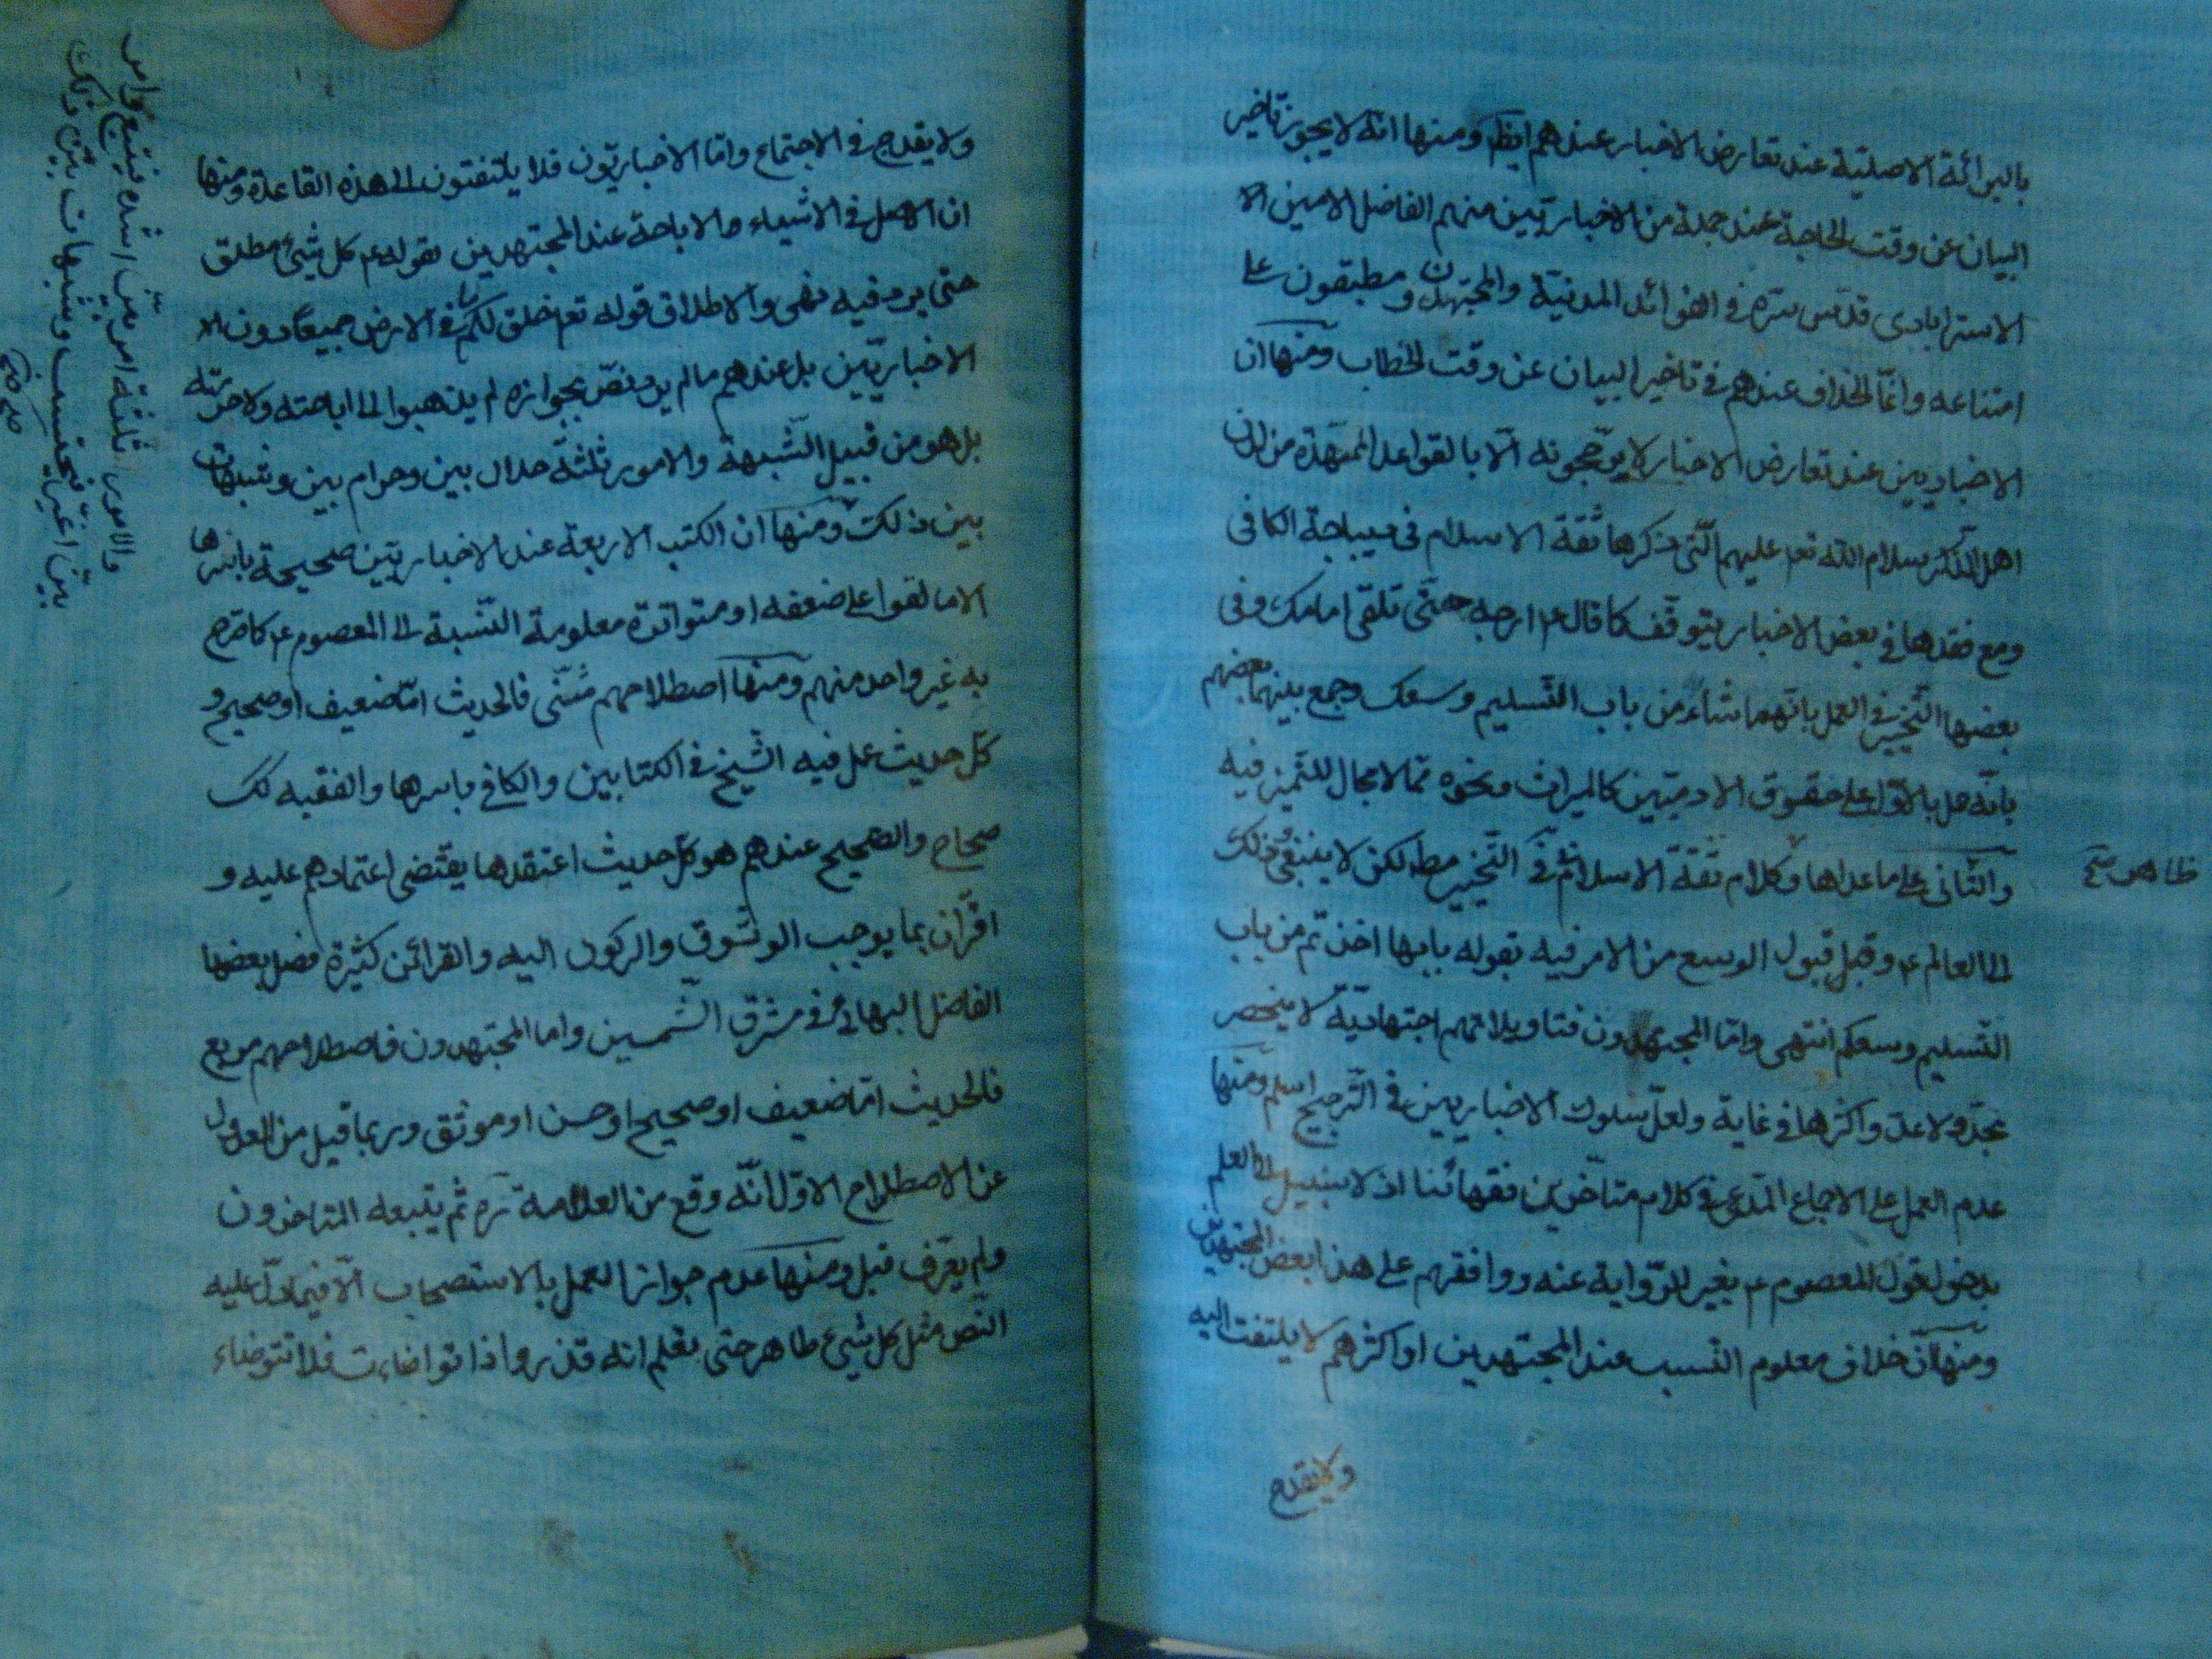 بالبرائة الاصلية عند تعارض الاخبار عندهم ايضا ومنها انه لا يجوز تاخير
البيان عن وقت الحاجة عند جملة من الاخباريين منهم الفاضل الامين الا
الاسترابادى قدس سره فى الفوائد المدنية والمجتهدون مطبقون على
امتناعه وانما الخلاف عندهم فى تاخير البيان عن وقت الخطاب ومنها ان
الاخباريين عند تعارض الاخبار لا يرجحونه الا بالقواعد الممهدة من لدن
اهل الذكر سلام الله تعم عليهم التى ذكرها ثقة الاسلام فى ديباجة الكافى
ومع فقدها فى بعض الاخبار يتوقف كما قال ع ارجه حتى تلقى امامك وفى
بعضها التخيير فى العمل بايهما شاء من باب التسليم وسعك وجمع بينهما بعضهم
بانه حمل الاول على حقوق الادميين كالميراث ونحوه مما لا مجال للتخيير فيه
والثانى على ماعداها وكلام ثقة الاسلام فى التخيير مط لكن لا ينبغى ذلك
ظاهر
الى العالم ع وقبل قبول الوسع من الامر فيه بقوله بايها اخذتم من باب
التسليم وسعكم انتهى واما المجتهدون فتاويلاتهم اجتهادية لا ينحصر
بحد ولا عد واكثرها فى غاية ولعل سلوك الاخباريين فى الترجيح اسلم ومنها
عدم العمل على الاجماع المدعى فى كلام متاخرين فقهائنا اذ لا سبيل الى العلم
بدخول قول المعصوم ع بغير الرواية عنه ووافقهم على هذا بعض المجتهدين
ومنها ان خلاف معلوم النسب عند المجتهدين او اكثرهم لا يلتفت اليه
ولا يقدح
ولا يقدح فى الاجتماع واما الاخباريون فلا يلتفتون الى هذه القاعدة ومنها
ان الاصل فى الاشياء الاباحة عند المجتهدين بقوله ع كل شئ مطلق
حتى يرد فيه نهى والاطلاق قوله تعم خلق لكم ما فى الارض جميعا دون الا
الاخباريين بل عندهم ما لم يرد نص بجوازه لم يذهبوا الى اباحته ولا حرمته
بل هو من قبيل الشبهة والامور ثلثة حلال بين وحرام بين وشبهات
بين ذلك ومنها ان الكتب الاربعة عند الاخباريين صحيحة باسرها
الا ما لقوا على ضعفه او متواترة معلومة النسبة الى المعصوم ع كما صرح
به غير واحد منهم ومنها اصطلاحهم مثنى فالحديث اما ضعيف او صحيح و
كل حديث عمل فيه الشيخ فى الكتابين والكافى باسرها والفقيه كك
صحاح والصحيح عندهم هو كل حديث اعتضد بما يقتضى اعتمادهم عليه و
اقترن بما يوجب الوثوق والركون اليه والقرائن كثيرة فصل بعضها
الفاضل البهائى فى مشرق الشمسين واما المجتهدون فاصطلاحهم مربع
فالحديث اما ضعيف او صحيح او حسن او موثق وربما قيل من العدول
عن الاصطلاح الاول انه وقع من العلامة ره ثم يتبعه المتاخرون
ولم يعرف قبل ومنها عدم جواز العمل بالاستصحاب الا فيما دل عليه
النص مثل كل شئ طاهر حتى تعلم انه قذر واذا توضات فلا تتوضاء
والامور ثلثة امر بين رشده فيتبع وامر
بين غيه فيجتنب وشبهات بين ذلك